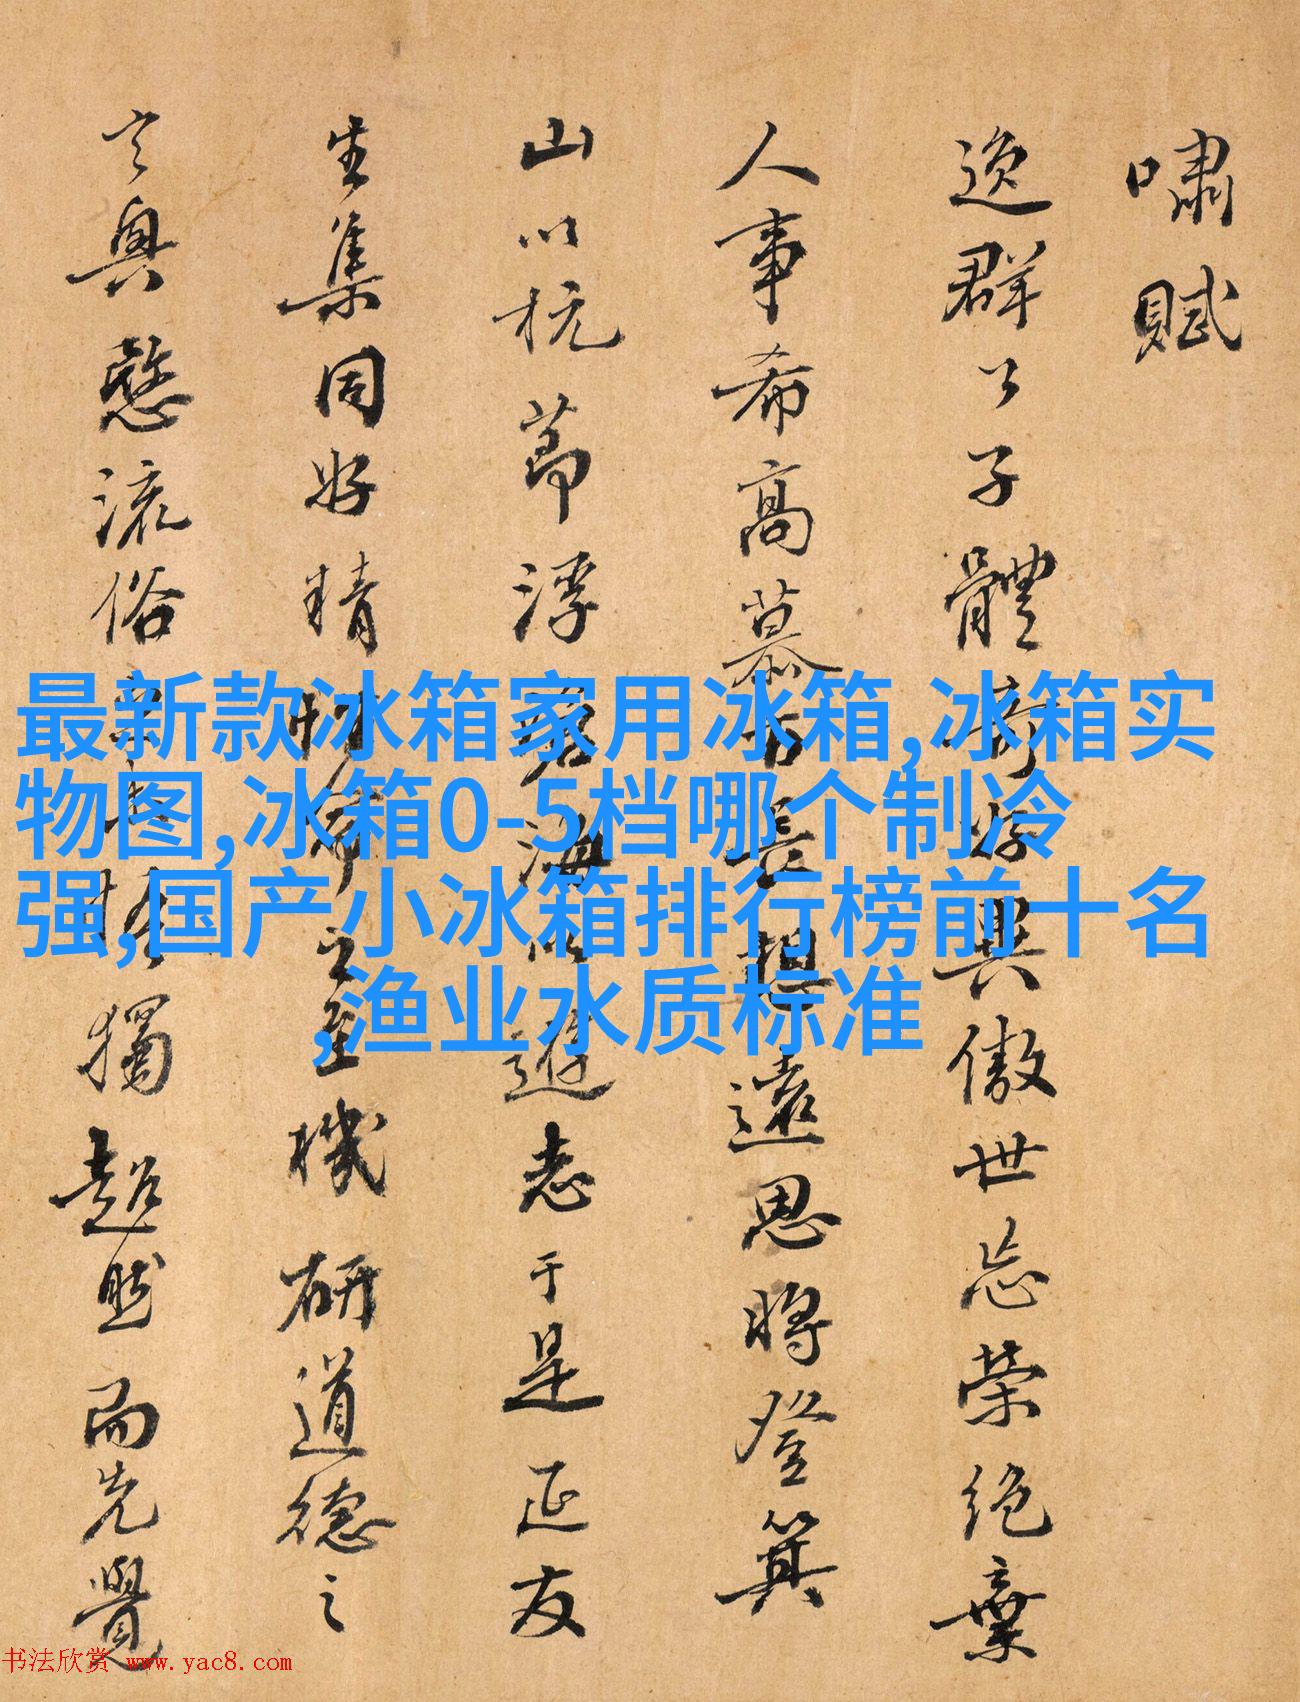 嘯賦
逸群公子體奇好異傲世忘榮絕棄
人事希高慕古長想遠思將登箕
山以抗節浮滄海以遊志于是延友
生集同好精性命之至機研道德之
玄奧愍流俗未悟獨超然而先覺
最新款冰箱家用冰箱,冰箱实
物图,冰箱0-5档哪个制冷
强,国产小冰箱排行榜前十名
,渔业水质标准
书法欣赏 www.yac8.com